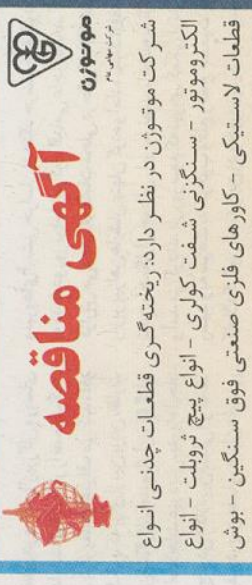 موتوژن
شرکت سهامی عام
آگهی مناقصه
شرکت موتوژن در نظر دارد: ریخته‌گری قطعات چدنی انواع
الکتروموتور - سنگزنی شفت کولری - انواع پیچ ثروبلت - انواع
قطعات لاستیکی - کاورهای فلزی صنعتی فوق سنگین - بوش